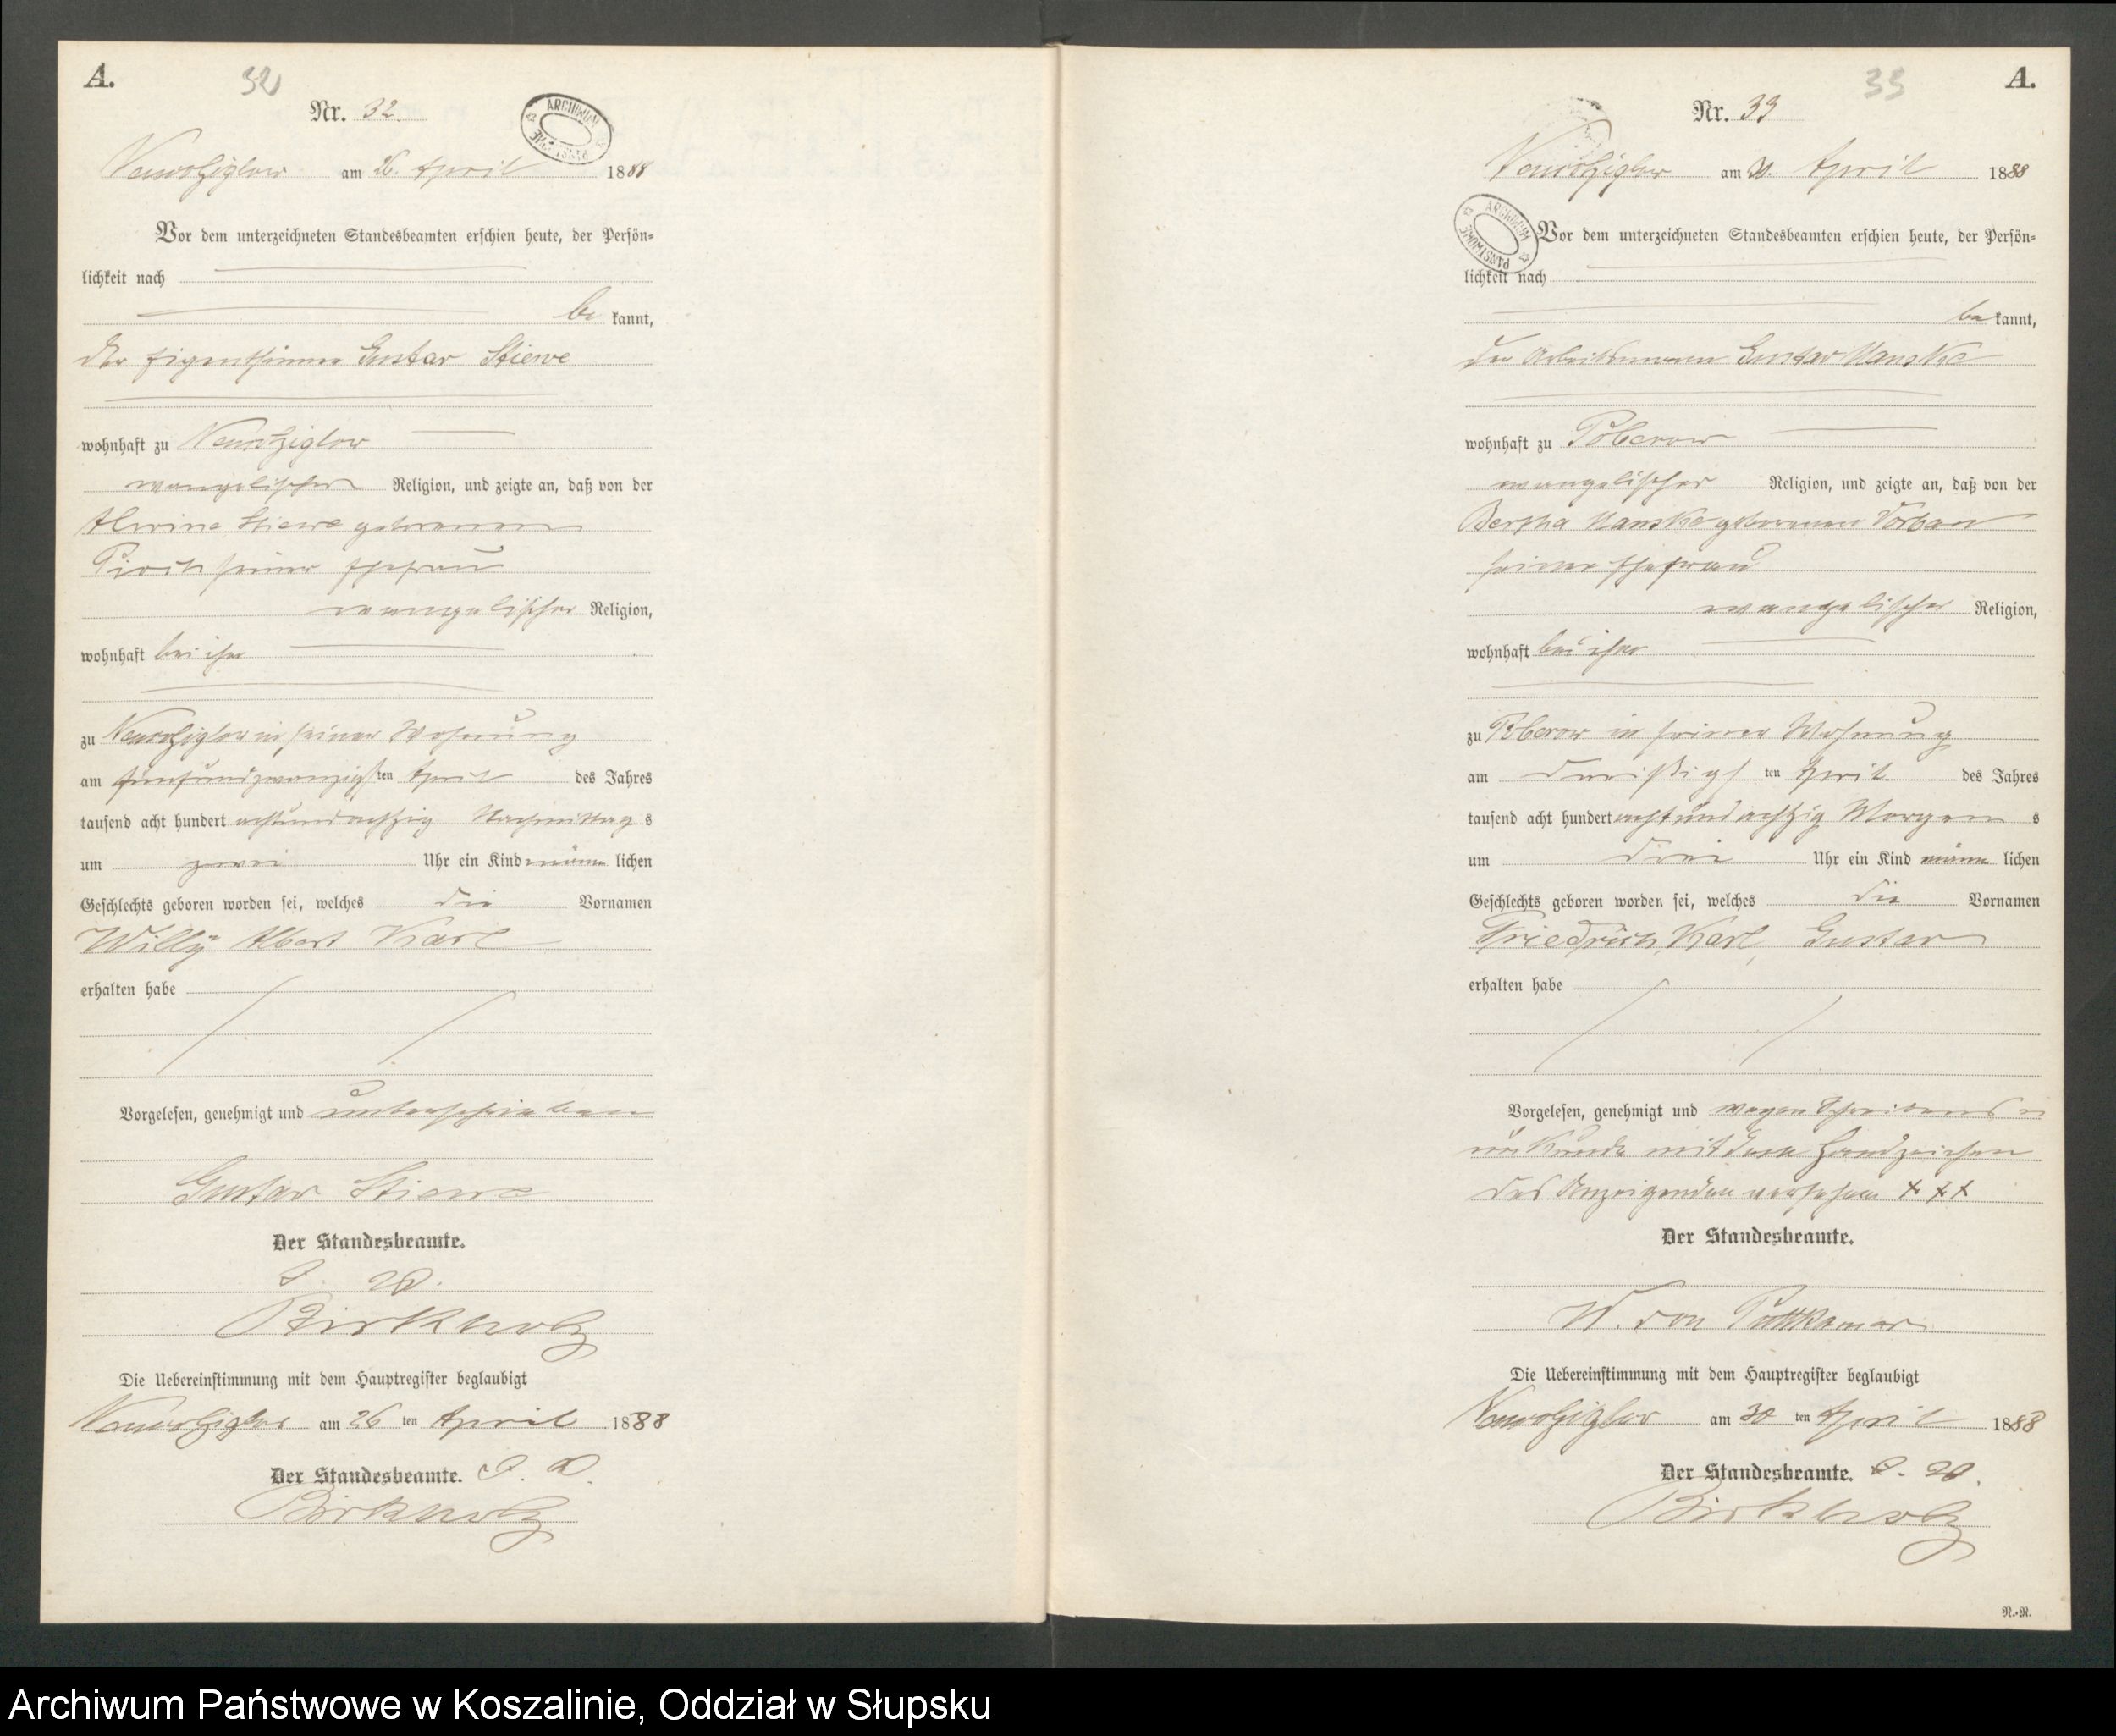 A.
32
Nr. 32.
ARCHIWUM PAŃSTWOWE
am 26. April 1888
Vor dem unterzeichneten Standesbeamten erschien heute, der Persön=
lichkeit nach
be kannt,
der Eigenthümer Gustav Stiewe
wohnhaft zu
evangelischer Religion, und zeigte an, daß von der
Alwine Stiewe geborenen
seiner Ehefrau
evangelischer Religion,
wohnhaft bei ihm
zu in seiner Wohnung
am fünfundzwanzigsten April des Jahres
tausend acht hundert achtundachtzig Nachmittags
um zwei Uhr ein Kind männlichen
Geschlechts geboren worden sei, welches die Vornamen
Willy Albert Karl
erhalten habe
Vorgelesen, genehmigt und unterschrieben
Gustav Stiewe
Der Standesbeamte.
Birkholz
Die Uebereinstimmung mit dem Hauptregister beglaubigt
am 26 ten April 1888
Der Standesbeamte.
Birkholz
33 A.
Nr. 33
am 30. April 1888
ARCHIWUM PAŃSTWOWE
Vor dem unterzeichneten Standesbeamten erschien heute, der Persön=
lichkeit nach
be kannt,
der Arbeitsmann Gustav Manske
wohnhaft zu Poberow
evangelischer Religion, und zeigte an, daß von der
Bertha Manske geborenen
seiner Ehefrau
evangelischer Religion,
wohnhaft bei ihm
zu Poberow in seiner Wohnung
am dreißigsten April des Jahres
tausend acht hundert achtundachtzig Morgens
um drei Uhr ein Kind männlichen
Geschlechts geboren worden sei, welches die Vornamen
Friedrich, Karl, Gustav
erhalten habe
Vorgelesen, genehmigt und wegen Schreibens un
kunde mit dem Handzeichen
des Anzeigenden versehen + + +
Der Standesbeamte.
W. von Puttkamer
Die Uebereinstimmung mit dem Hauptregister beglaubigt
am 30 ten April 1888
Der Standesbeamte.
Birkholz
R.-R.
Archiwum Państwowe w Koszalinie, Oddział w Słupsku